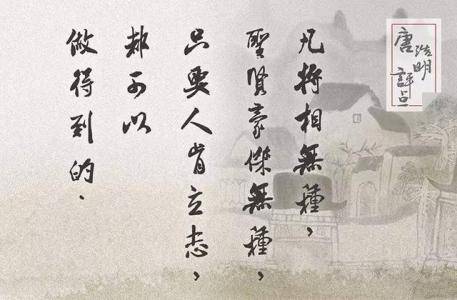 唐浩明
評點
凡將相無種，
聖賢豪傑無種，
只要人肯立志，
都可以
做得到的．